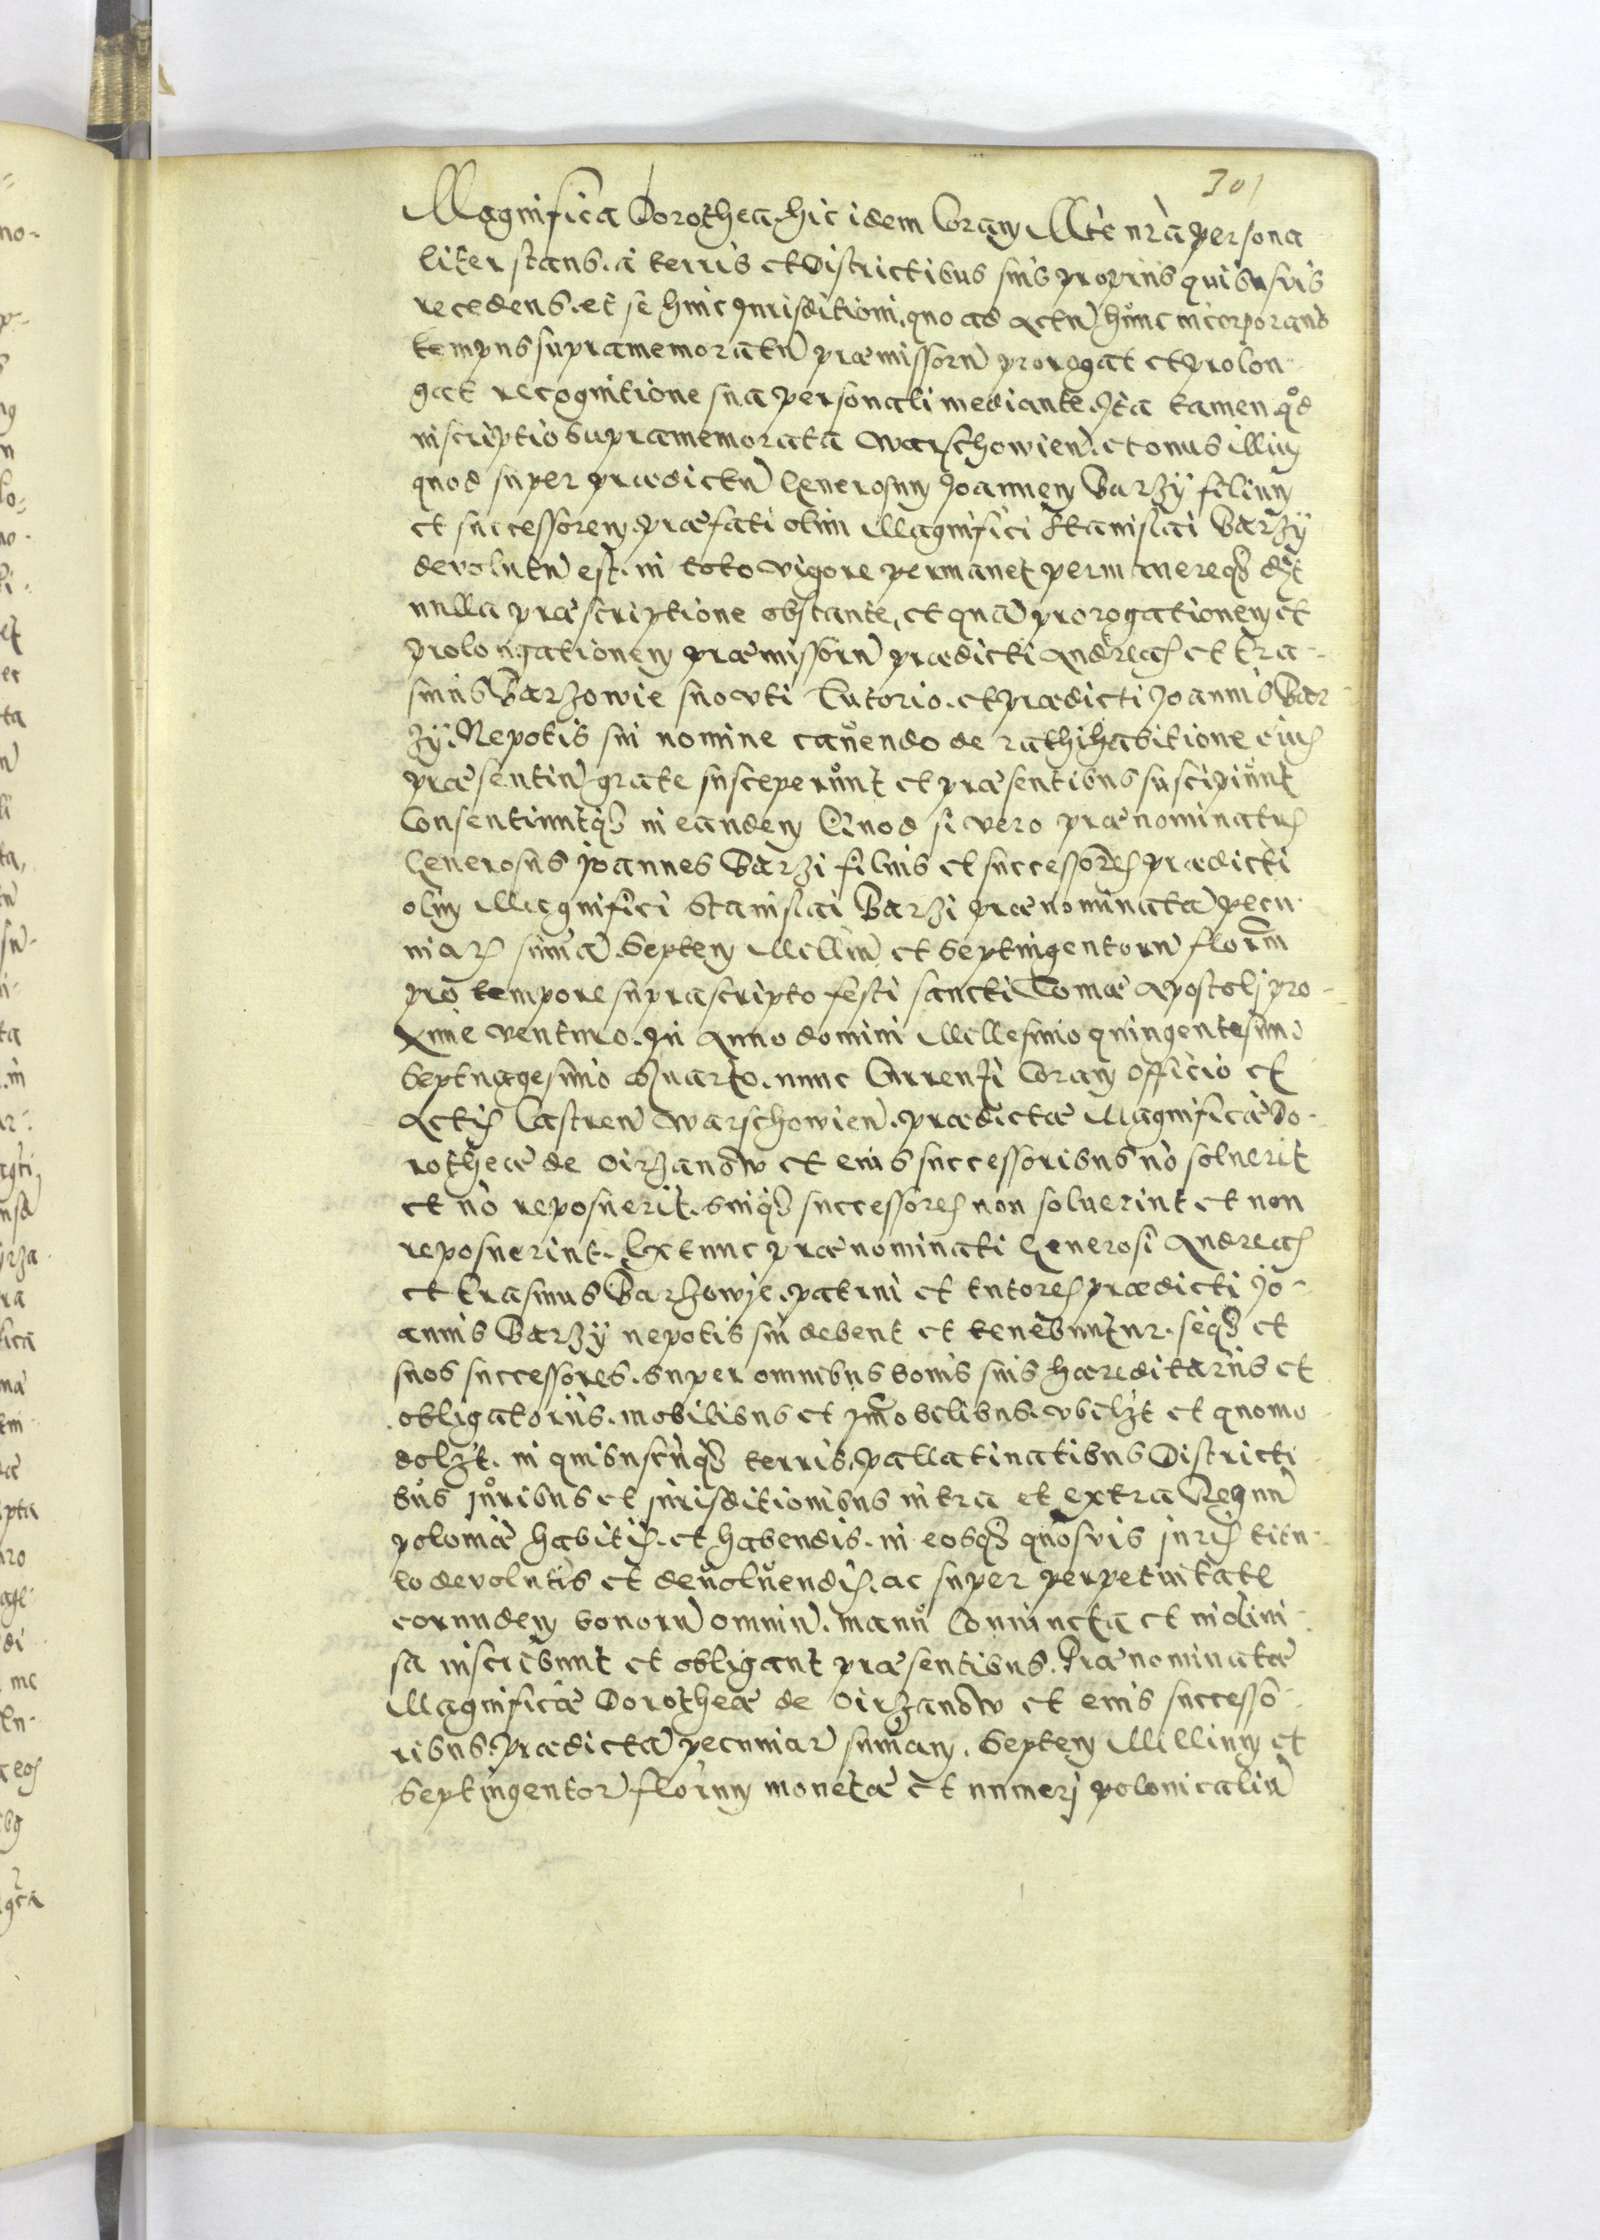 301
Magnifica Dorothea hic idem Coram Mte nrà persona
liter stans. a terris et Districtibus suis proprijs quibusvis
recedens. et se huic Jurisditioni, quo ad Actu hunc incorporans
tempus supramemoratu præmissoru prorogat et prolon-
gat recognitione sua personali mediante. Ita tamen qd
inscriptio supramemorata Warschowien. et onus illius
quod super prædictu Generosum Joannem Barzy filium
et successorem præfati olim Magnifici Stanislai Barzÿ
devolutu est. in toto vigore permanet permanereqȝ dȝt
nulla præscriptione obstante, et qua prorogationem et
prolongationem præmissoru prædicti Andreas et Era-
smus Barzowie suo vti Tutorio. et prædicti Joannis Bar-
zÿ. Nepotis sui nomine cavendo de rathihabitione eius
præsentiu grate susceperunt et præsentibus suscipiunt
Consentiuntqȝ in eandem Quod si vero prænominatus
Generosus Joannes Barzi filius et successores prædicti
olim Magnifici Stanislai Barzi prænominata pecu-
niar summa. Septem Milliu et Septingentoru florum
pro tempore suprascripto festi sancti Tomæ Apostoli pro-
xime venturo. In Anno domini Millesimo quingentesimo
Septuagesimo Quarto. nunc Currenti Coram officio et
Actis Castren Warschowien. prædictæ Magnificæ Do-
rotheæ de Oirzanow et eius successoribus no soluerit
et no reposuerit. suiqȝ successores non soluerint et non
reposuerint. Extunc prænominati Generosi Andreas
et Erasmus Barzowie. patrui et tutores prædicti Jo-
annis Barzÿ nepotis sui debent et tenebuntur. seqȝ et
suos successores. super omnibus bonis suis hæreditarijs et
obligatorijs. mobilibus et Immobilibus. vbilȝt et quomo-
dolȝt. in quibuscuqȝ terris, pallatinatibus Districti
bus Juribus et jurisditionibus intra et extra Regnu
poloniæ habitis. et habendis. in eosqȝ quosvis juris titu-
lo devolutis et devoluendis. ac super perpetuitate
eorundem bonoru omniu. manu Coniuncta et indiui-
sa inscribunt et obligant præsentibus. Prænominatæ
Magnificæ Dorotheæ de Oirzanow et eius successo-
ribus. prædicta pecuniar summam. Septem Millium et
Septingentor florum monetæ et numeri polonicaliu